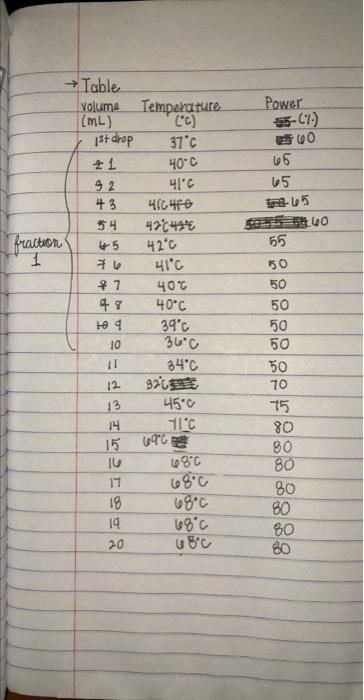 → Table
Volume (mL) Temperature (°C) Power (%)
1st drop 37°C 60
1 40°C 65
2 41°C 65
3 41C 65
4 42°C 60
5 42°C 55
6 41°C 50
7 40°C 50
8 40°C 50
9 39°C 50
10 36°C 50
fraction 1
11 34°C 50
12 32°C 70
13 45°C 75
14 71°C 80
15 69°C 80
16 68°C 80
17 68°C 80
18 68°C 80
19 68°C 80
20 68°C 80